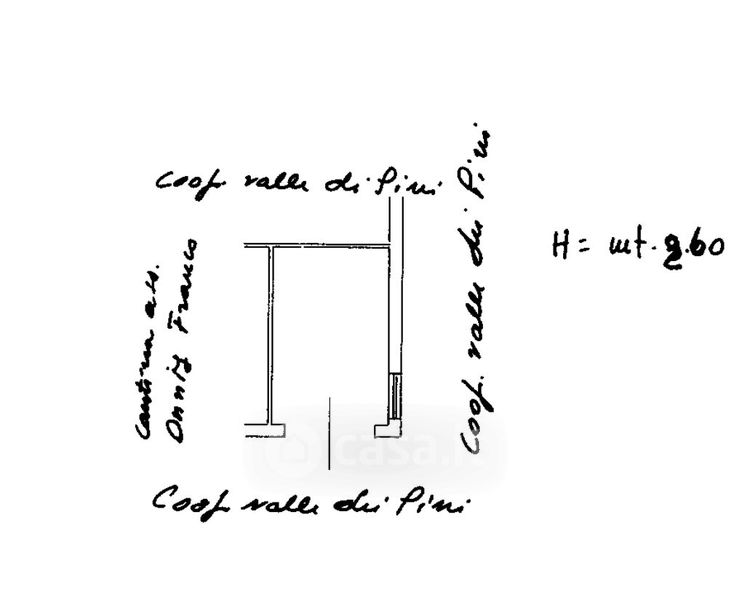 Coop. valle dei Pini
Coop. valle dei Pini
H = mt. 2.60
Cantina
Franco
Coop valle dei Pini
casa.it